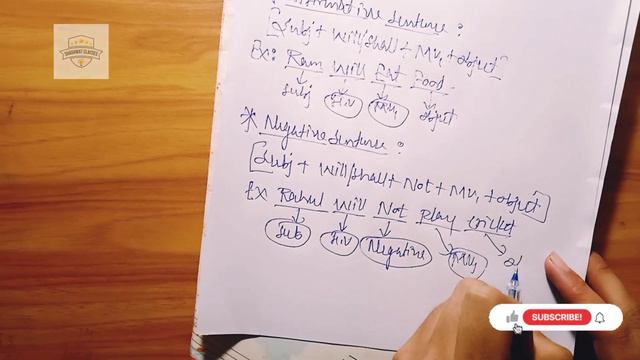 Affirmative Sentence :
[Subj + will/shall + MV₁ + object]
Ex: Ram Will Eat Food.
Subj HV MV₁ object
* Negative Sentence :
[Subj + will/shall + Not + MV₁ + object]
Ex Rahul Will Not play cricket
Sub HV Negative MV₁ o
SUBSCRIBE!